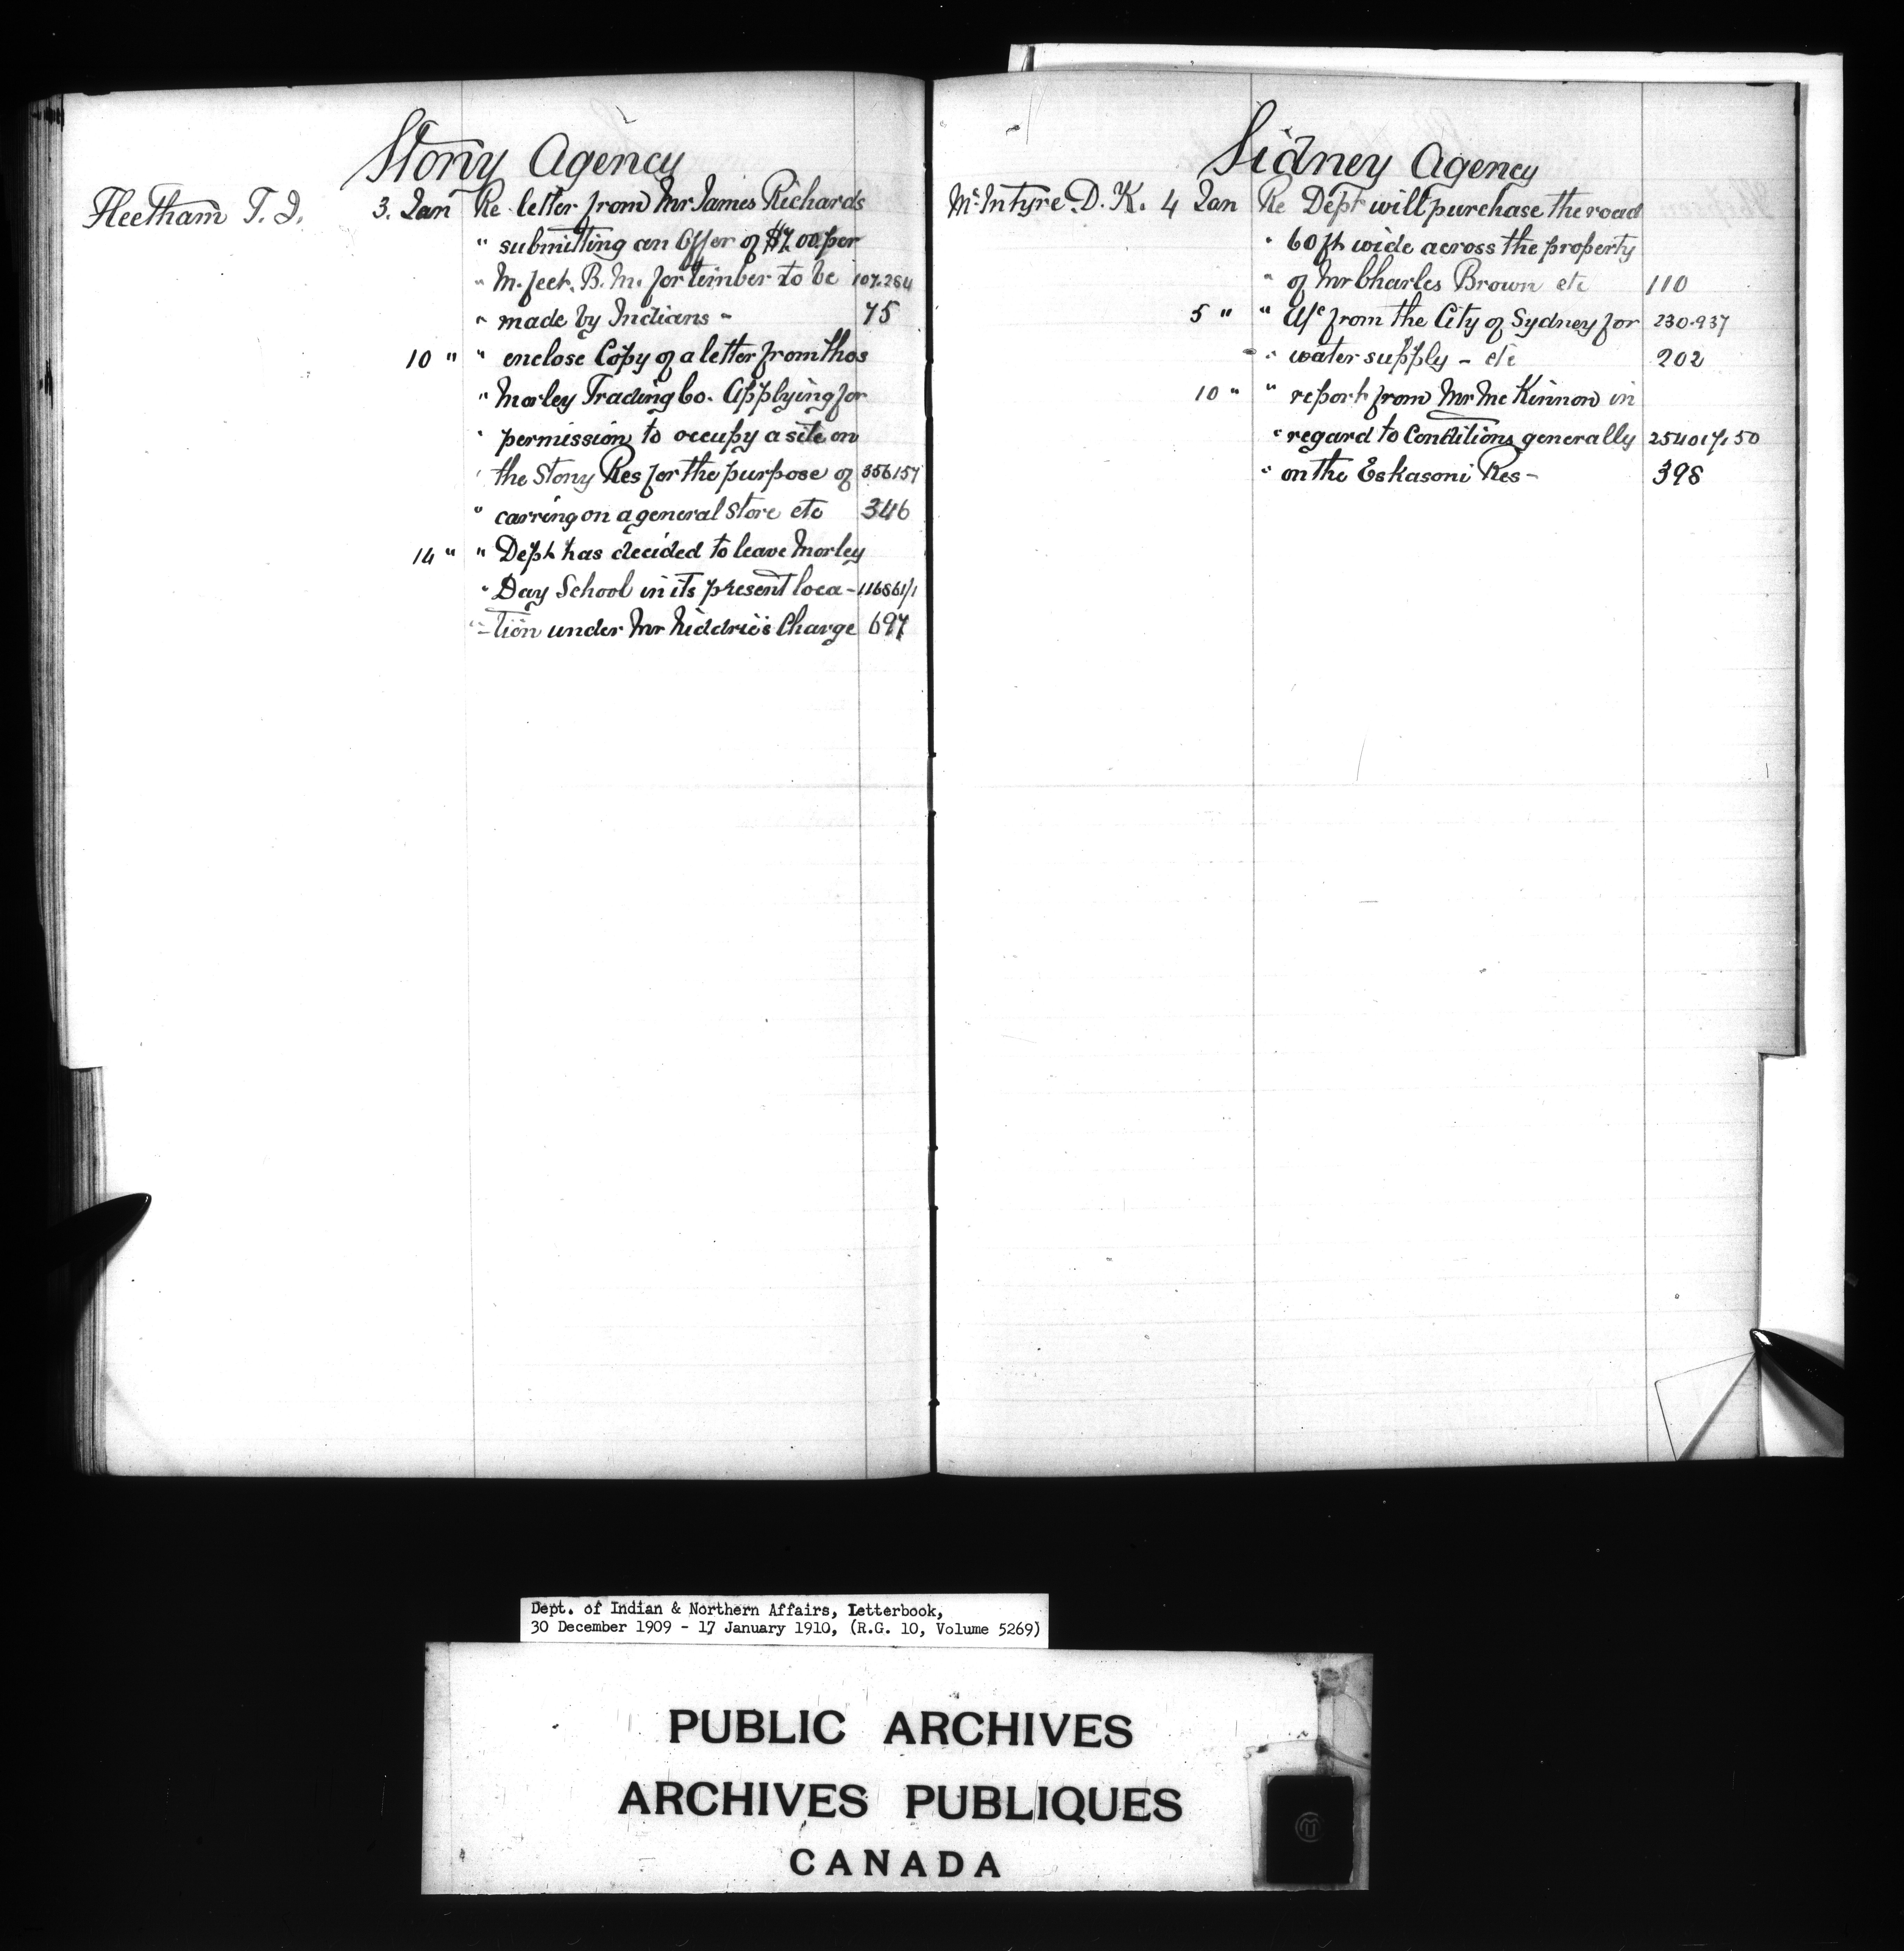 Stony Agency
Fleetham T. J. 3. Jan Re letter from Mr James Richards
" submitting an Offer of $7.00 per
" M. feet. B. M. for timber to be 107.284
" made by Indians - 75
10 " " enclose Copy of a letter from thos
" Morley Trading Co. Applying for
" permission to occupy a site on
" the Stony Res for the purpose of 356157
" carring on a general Store etc 346
14 " " Dept has decided to leave Morley
" Day School in its present loca - 116861/1
" - tion under Mr Niddrie's Charge 697
Sidney Agency
McIntyre. D. K. 4 Jan Re Dept will purchase the road
" 60 ft wide across the property
" of Mr Charles Brown etc 110
5 " " A/c from the City of Sydney for 230.937
" water supply - etc 202
10 " " report from Mr McKinnon in
" regard to Conditions generally 254017/150
" on the Eskasoni Res - 398
Dept. of Indian & Northern Affairs, Letterbook,
30 December 1909 - 17 January 1910, (R.G. 10, Volume 5269)
PUBLIC ARCHIVES
ARCHIVES PUBLIQUES
CANADA